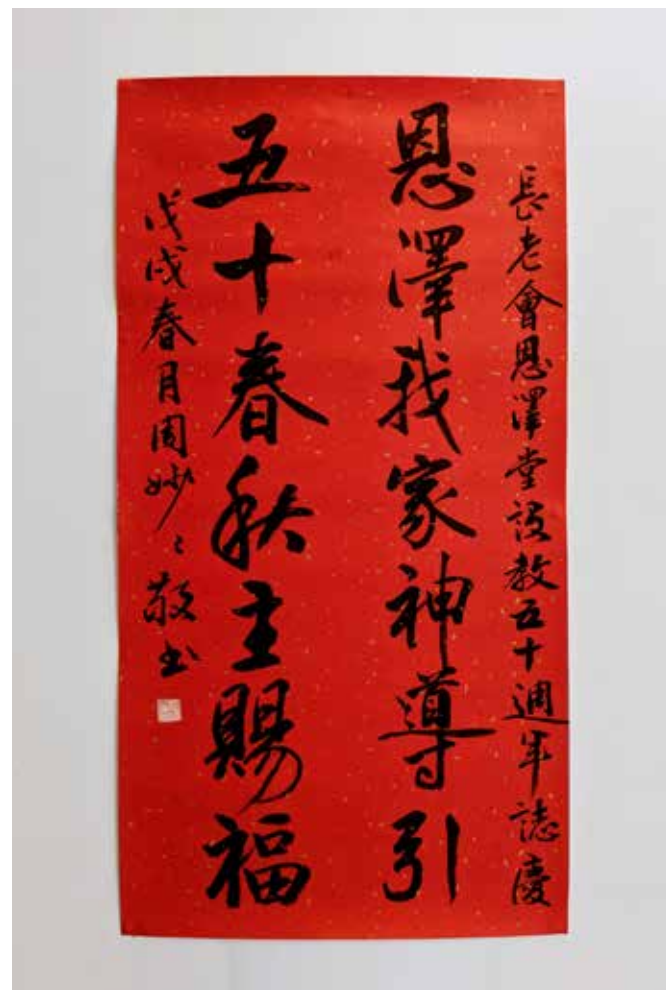 長老會恩澤堂設教五十週年誌慶
恩澤我家神導引
五十春秋主賜福
戊戌春月周妙々敬书